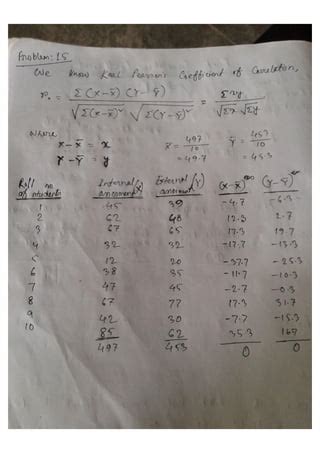 Problem: 15
We know Karl Pearson's Coefficient of Correlation,
r = Σ(X-X̄)(Y-Ȳ) / √Σ(X-X̄)² √Σ(Y-Ȳ)² = Σxy / √Σx √Σy
where
X-X̄ = x X̄ = 497/10 Ȳ = 453/10
Y-Ȳ = y = 49.7 = 45.3
Roll no Internal (X) External (Y) (X-X̄) (Y-Ȳ)
of students
1 45 39 -4.7 -6.3
2 62 48 12.3 2.7
3 67 65 17.3 19.7
4 32 32 -17.7 -13.3
5 12 20 -37.7 -25.3
6 38 35 -11.7 -10.3
7 47 45 -2.7 -0.3
8 67 77 17.3 31.7
9 42 30 -7.7 -15.3
10 85 62 35.3
497 453 0 0